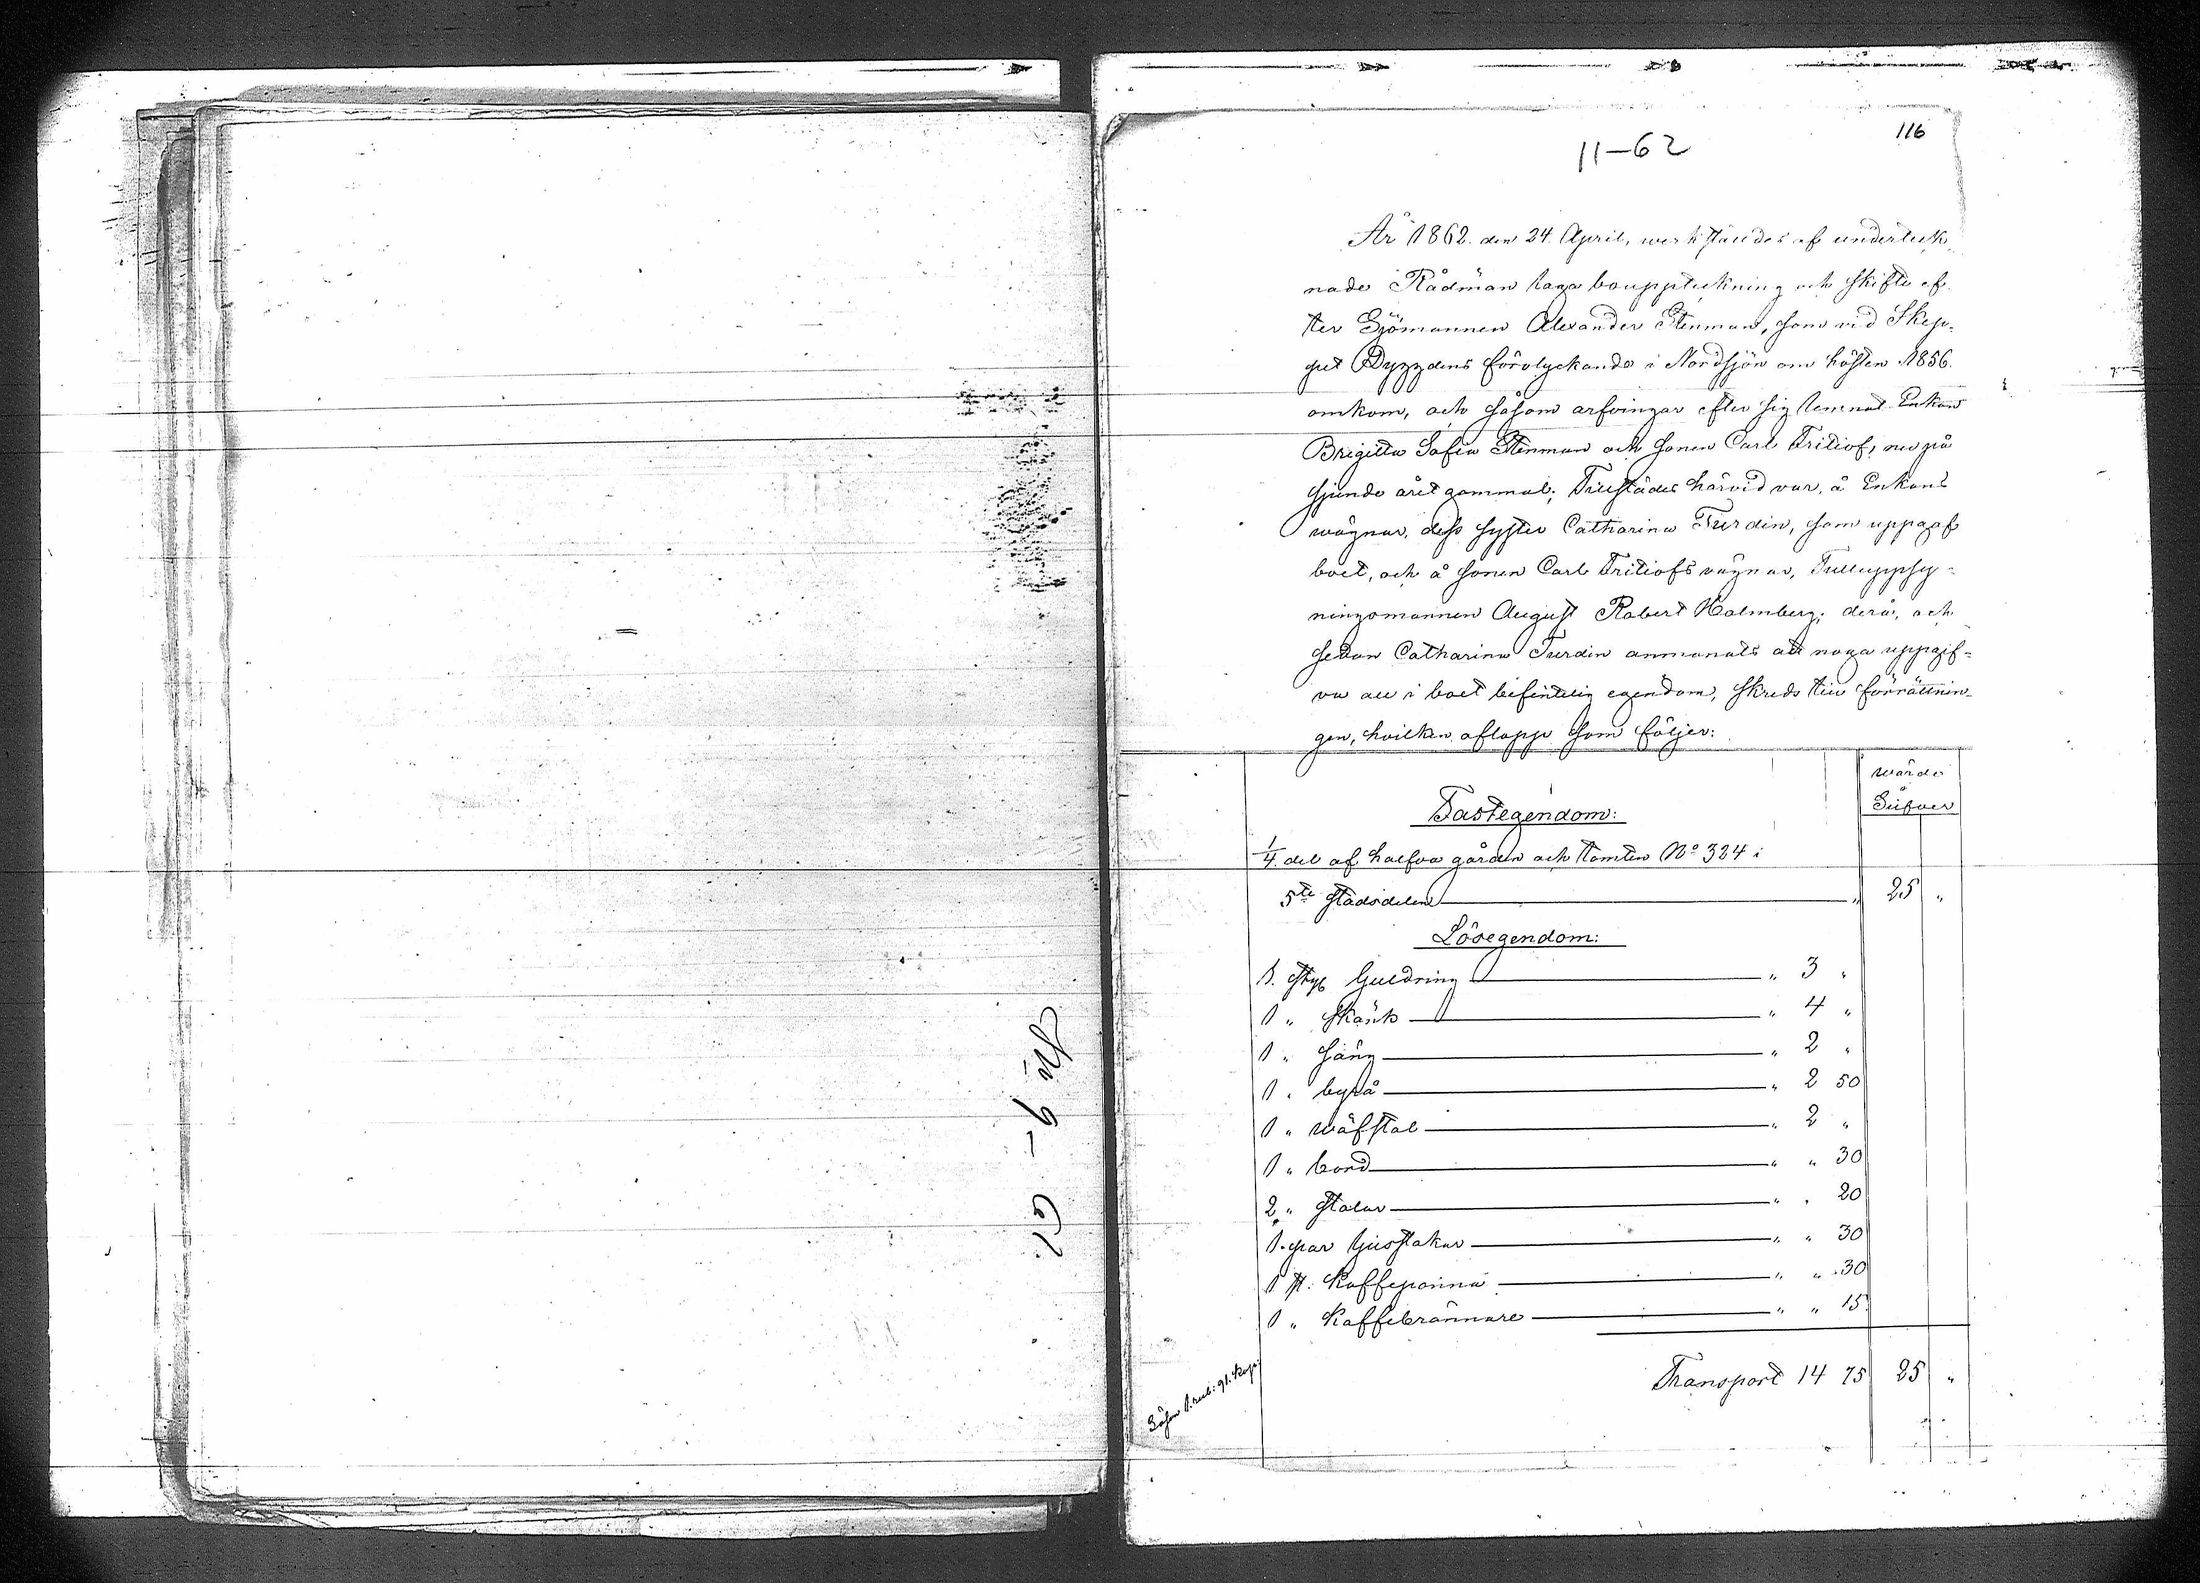 No 9 - 61.
116
11-62
År 1862. den 24. April, werkstäldes af underteck-
nade Rådmän laga bouppteckning och skifte ef-
ter Sjömannen Alexander Stenman, som vid Skep-
pet förolyckande i Nordsjön om hösten 1856.
omkom, och såsom arfvingar efter sig lemnat Enkan
Brigitta Sofia Stenman och sonen Carl Fritiof, nu på
sjunde året gammal; Tillstädes härvid var, å Enkans
wägnar, dess syster Catharina Turdin, som uppgaf
boet, och å sonen Carl Fritiofs vägnar, Tulluppsy-
ningsmannen August Robert Holmberg; derå, och
sedan Catharina Turdin anmanats att noga uppgif-
va all i boet befintelig egendom, skreds till förrättnin-
gen, hvilken aflopp som följer:
wärde
Silfver
Fastegendom:
1/4 del af halfva gården och tomten No 324 i
5te stadsdelen " 25 "
Lösegendom:
1. styck Guldring " 3 "
1 " skänk " 4 "
1 " säng " 2 "
1 " byrå " 2 50
1 " wäfstol " 2 "
1 " bord " " 30
2 " stolar " " 20
1 par ljusstakar " " 30
1 st. Kaffepanna " " 30
1 " Kaffebrännare " " 15
Transport 14 75 25 "
Lösen 1. rub: 91. kop: